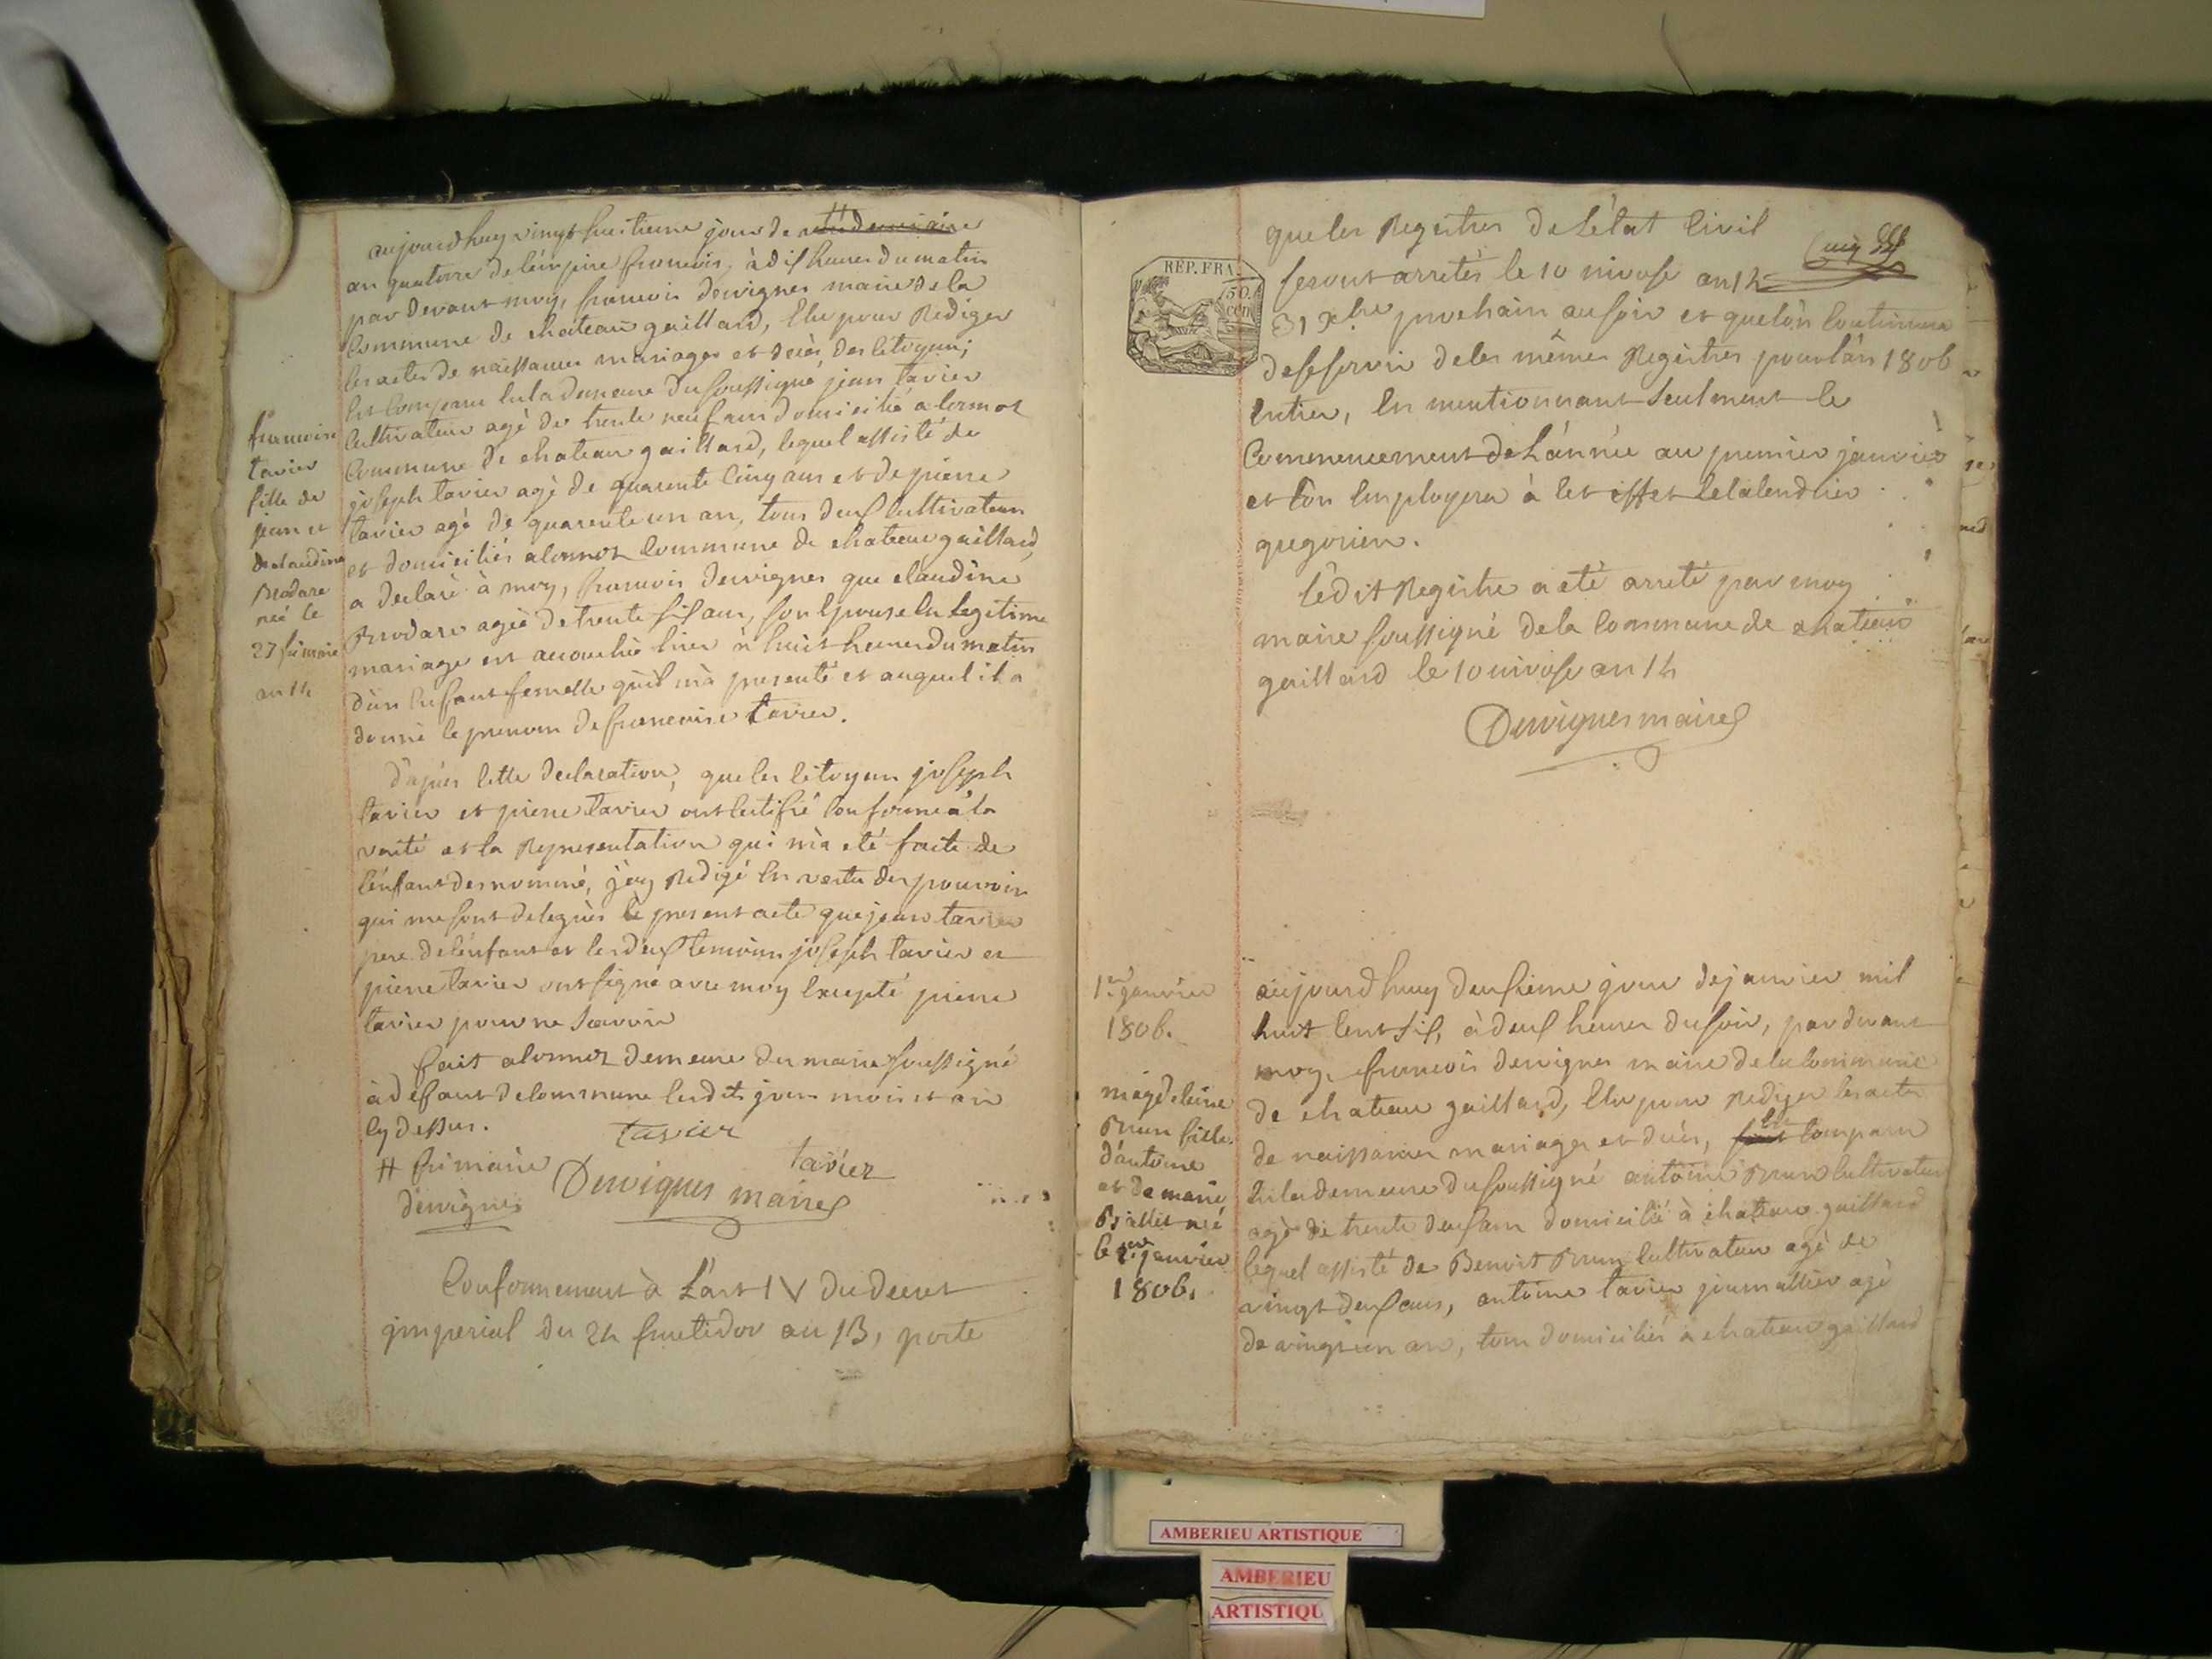 aujourdhuy vingt huitieme jour de # vendemiaire
an quatorze de l'empire francois, à dix heures du matin
par devant moy, francois Dervignes maire de la
Commune de chateau gaillard, Elu pour Rediger
les actes de naissances mariages et decès des Citoyens;
Est Comparu En la demeure du soussigné jean tavier
Cultivateur agé de trente neuf ans domicilié a Cormoz
Commune de chateau gaillard, lequel assisté de
joseph tavier agé de quarente Cinq ans et de pierre
tavier agé de quarente un an, tous deux Cultivateurs
et domiciliés a Cormoz Commune de chateau gaillard,
a declaré à moy, francois Dervignes que claudine
Brodare agée de trente six ans, son Epouse En legitime
mariage est accouchée hier à huit heures du matin
d'un Enfant femelle qu'il m'a presenté et auquel il a
donné le prenom de francoise tavier.
francoise
tavier
fille de
jean et
de claudine
Brodare
née le
27 frimaire
an 14
D'après Cette declaration, que les Citoyens joseph
tavier et pierre tavier ont Certifié Conforme à la
verité et la Representation qui m'a eté faite de
l'enfant denommé, j'ay Redigé En vertu des pouvoirs
qui me sont delegués le present acte que jean tavier
pere de l'enfant et les deux temoins joseph tavier et
pierre tavier ont signé avec moy Excepté pierre
tavier pour ne Scavoir
fait a Cormoz demeure du maire soussigné
à defaut de Commune lesdits jour mois et an
Cy dessus.
tavier
# frimaire
tavier
dervignes
Dervignes maire
Conformement à L'art IV du decret
imperial du 24 fructidor an 13, porte
que les Registres de L'état Civil
REP. FRA.
50.
cen
seront arretés le 10 nivose an 14
31 Xbre prochain au soir et que l'on Continuera
de se servir de Ces mêmes Registres pour l'an 1806
Entier, En mentionnant Seulement le
Commencement de L'année au premier janvier
et l'on Employera à Cet effet le Calendrier
gregorien.
Ledit Registre a eté arreté par moy
maire soussigné de la Commune de chateau
gaillard le 10 nivose an 14
Dervignes maire
1er janvier
1806.
magdeleine
Brun fille
d'antoine
et de marie
né
le 1er janvier
1806.
aujourdhuy deuxieme jour de janvier mil
huit Cent Six, à deux heures du soir, par devant
moy, francois dervignes maire de la Commune
de chateau gaillard, Elu pour Rediger les actes
de naissances mariages et decès, Est Comparu
En la demeure du soussigné antoine Brun Cultivateur
agé de trente deux ans domicilié à chateau gaillard
lequel assisté de Benoit Brun Cultivateur agé de
vingt deux ans, antoine tavier journallier agé
de vingt un an, tous domiciliés à chateau gaillard
AMBERIEU ARTISTIQUE
AMBERIEU
ARTISTIQU